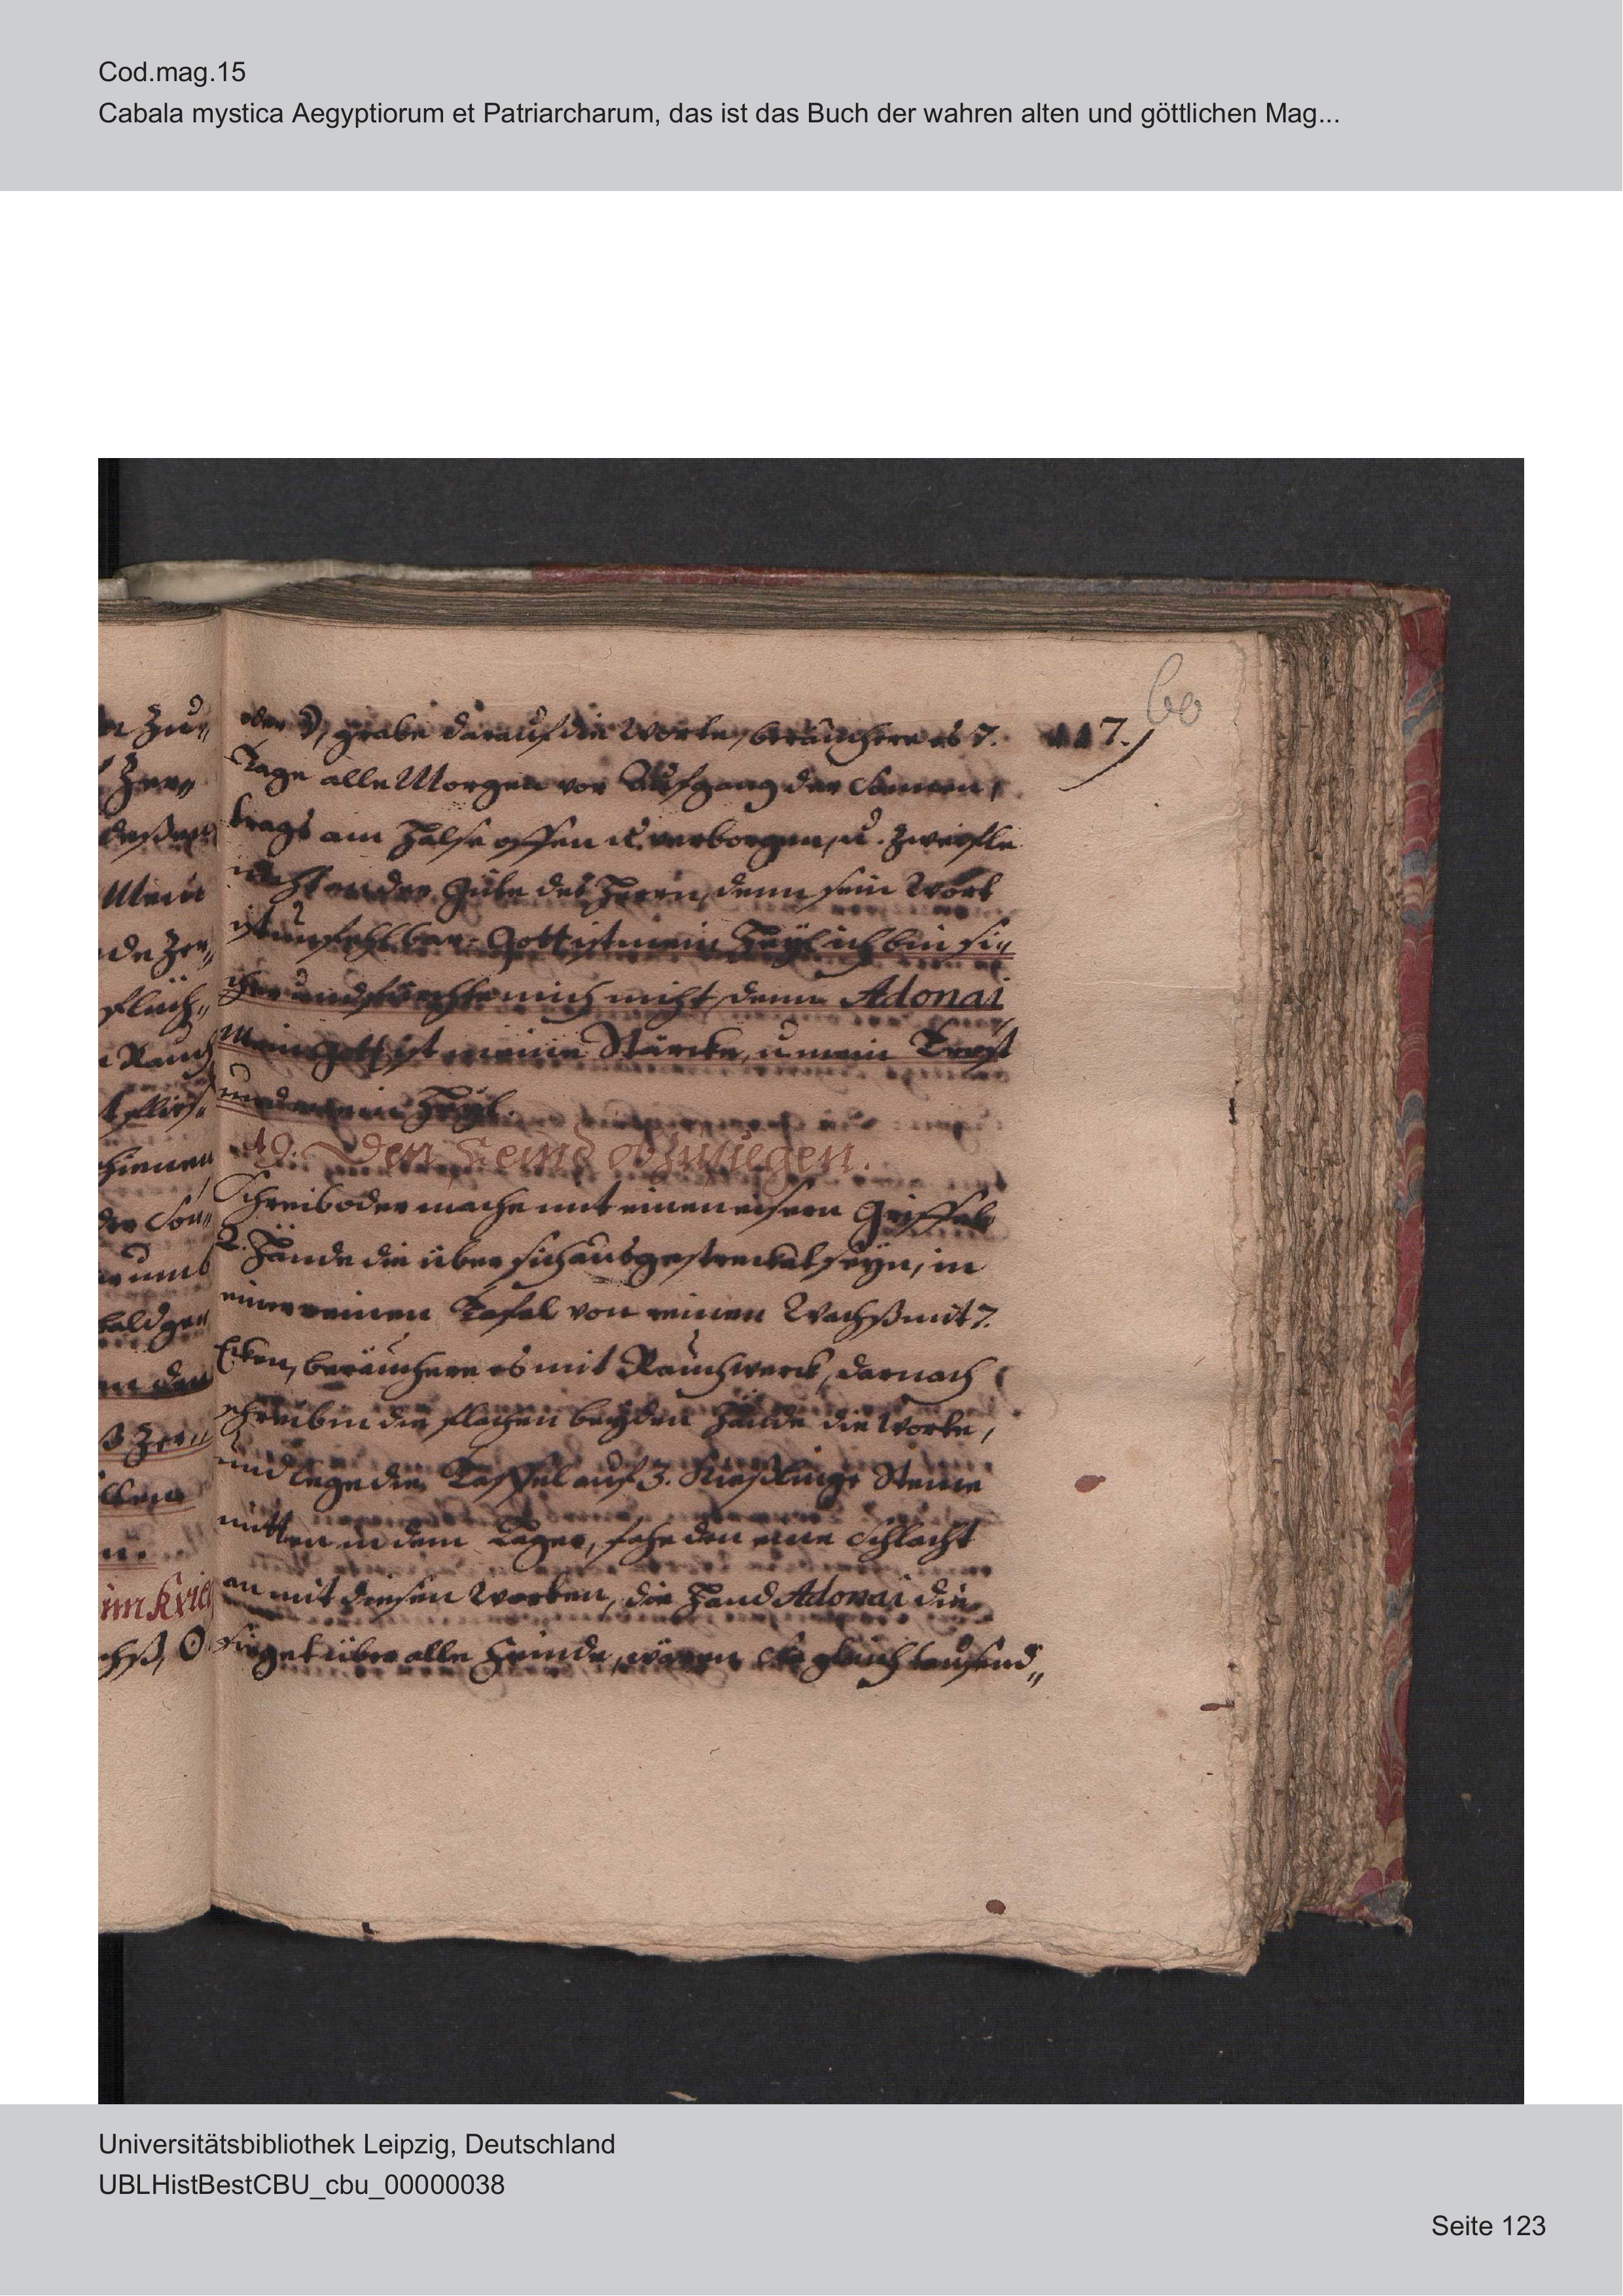 Cod.mag.15
Cabala mystica Aegyptiorum et Patriarcharum, das ist das Buch der wahren alten und göttlichen Mag...
60
oder ☽, grabe darauf die Worte, beräuchere es 7. 117.
Tage alle Morgen vor Aufgang der Sonnen,
trags am Halse offen u. verborgen, u. zweifle
nicht an der Güte des Herrn, denn sein Wort
ist unfehlbar. Gott ist mein Heÿl ich bin si„
cher und förchte mich nicht, denn Adonai
mein Gott ist meine Stärcke, u mein Trost
und mein Heÿl.
19. Den Feind obzusiegen.
Schreib oder mache mit einen eisern Griffel
2. Hände die über sich ausgestrecket seyn, in
einer reinen Tafel von reinen Wachß mit 7.
Ecken, beräuchere es mit Rauchwerck, darnach
schreib in die flachen beÿden Hände die Worte,
und lege die Taffel auf 3. Kießlinge Steine
mitten in dem Lager, fahe den eine Schlacht
an mit diesen Worten, die Hand Adonai die
sieget über alle Feinde, wären sie gleich tausend„
n Zu„
Mein
flüch„
Rauch
hienen
der Son„
umb
bald ge„
im Krie
chß, ☉
Universitätsbibliothek Leipzig, Deutschland
UBLHistBestCBU_cbu_00000038
Seite 123